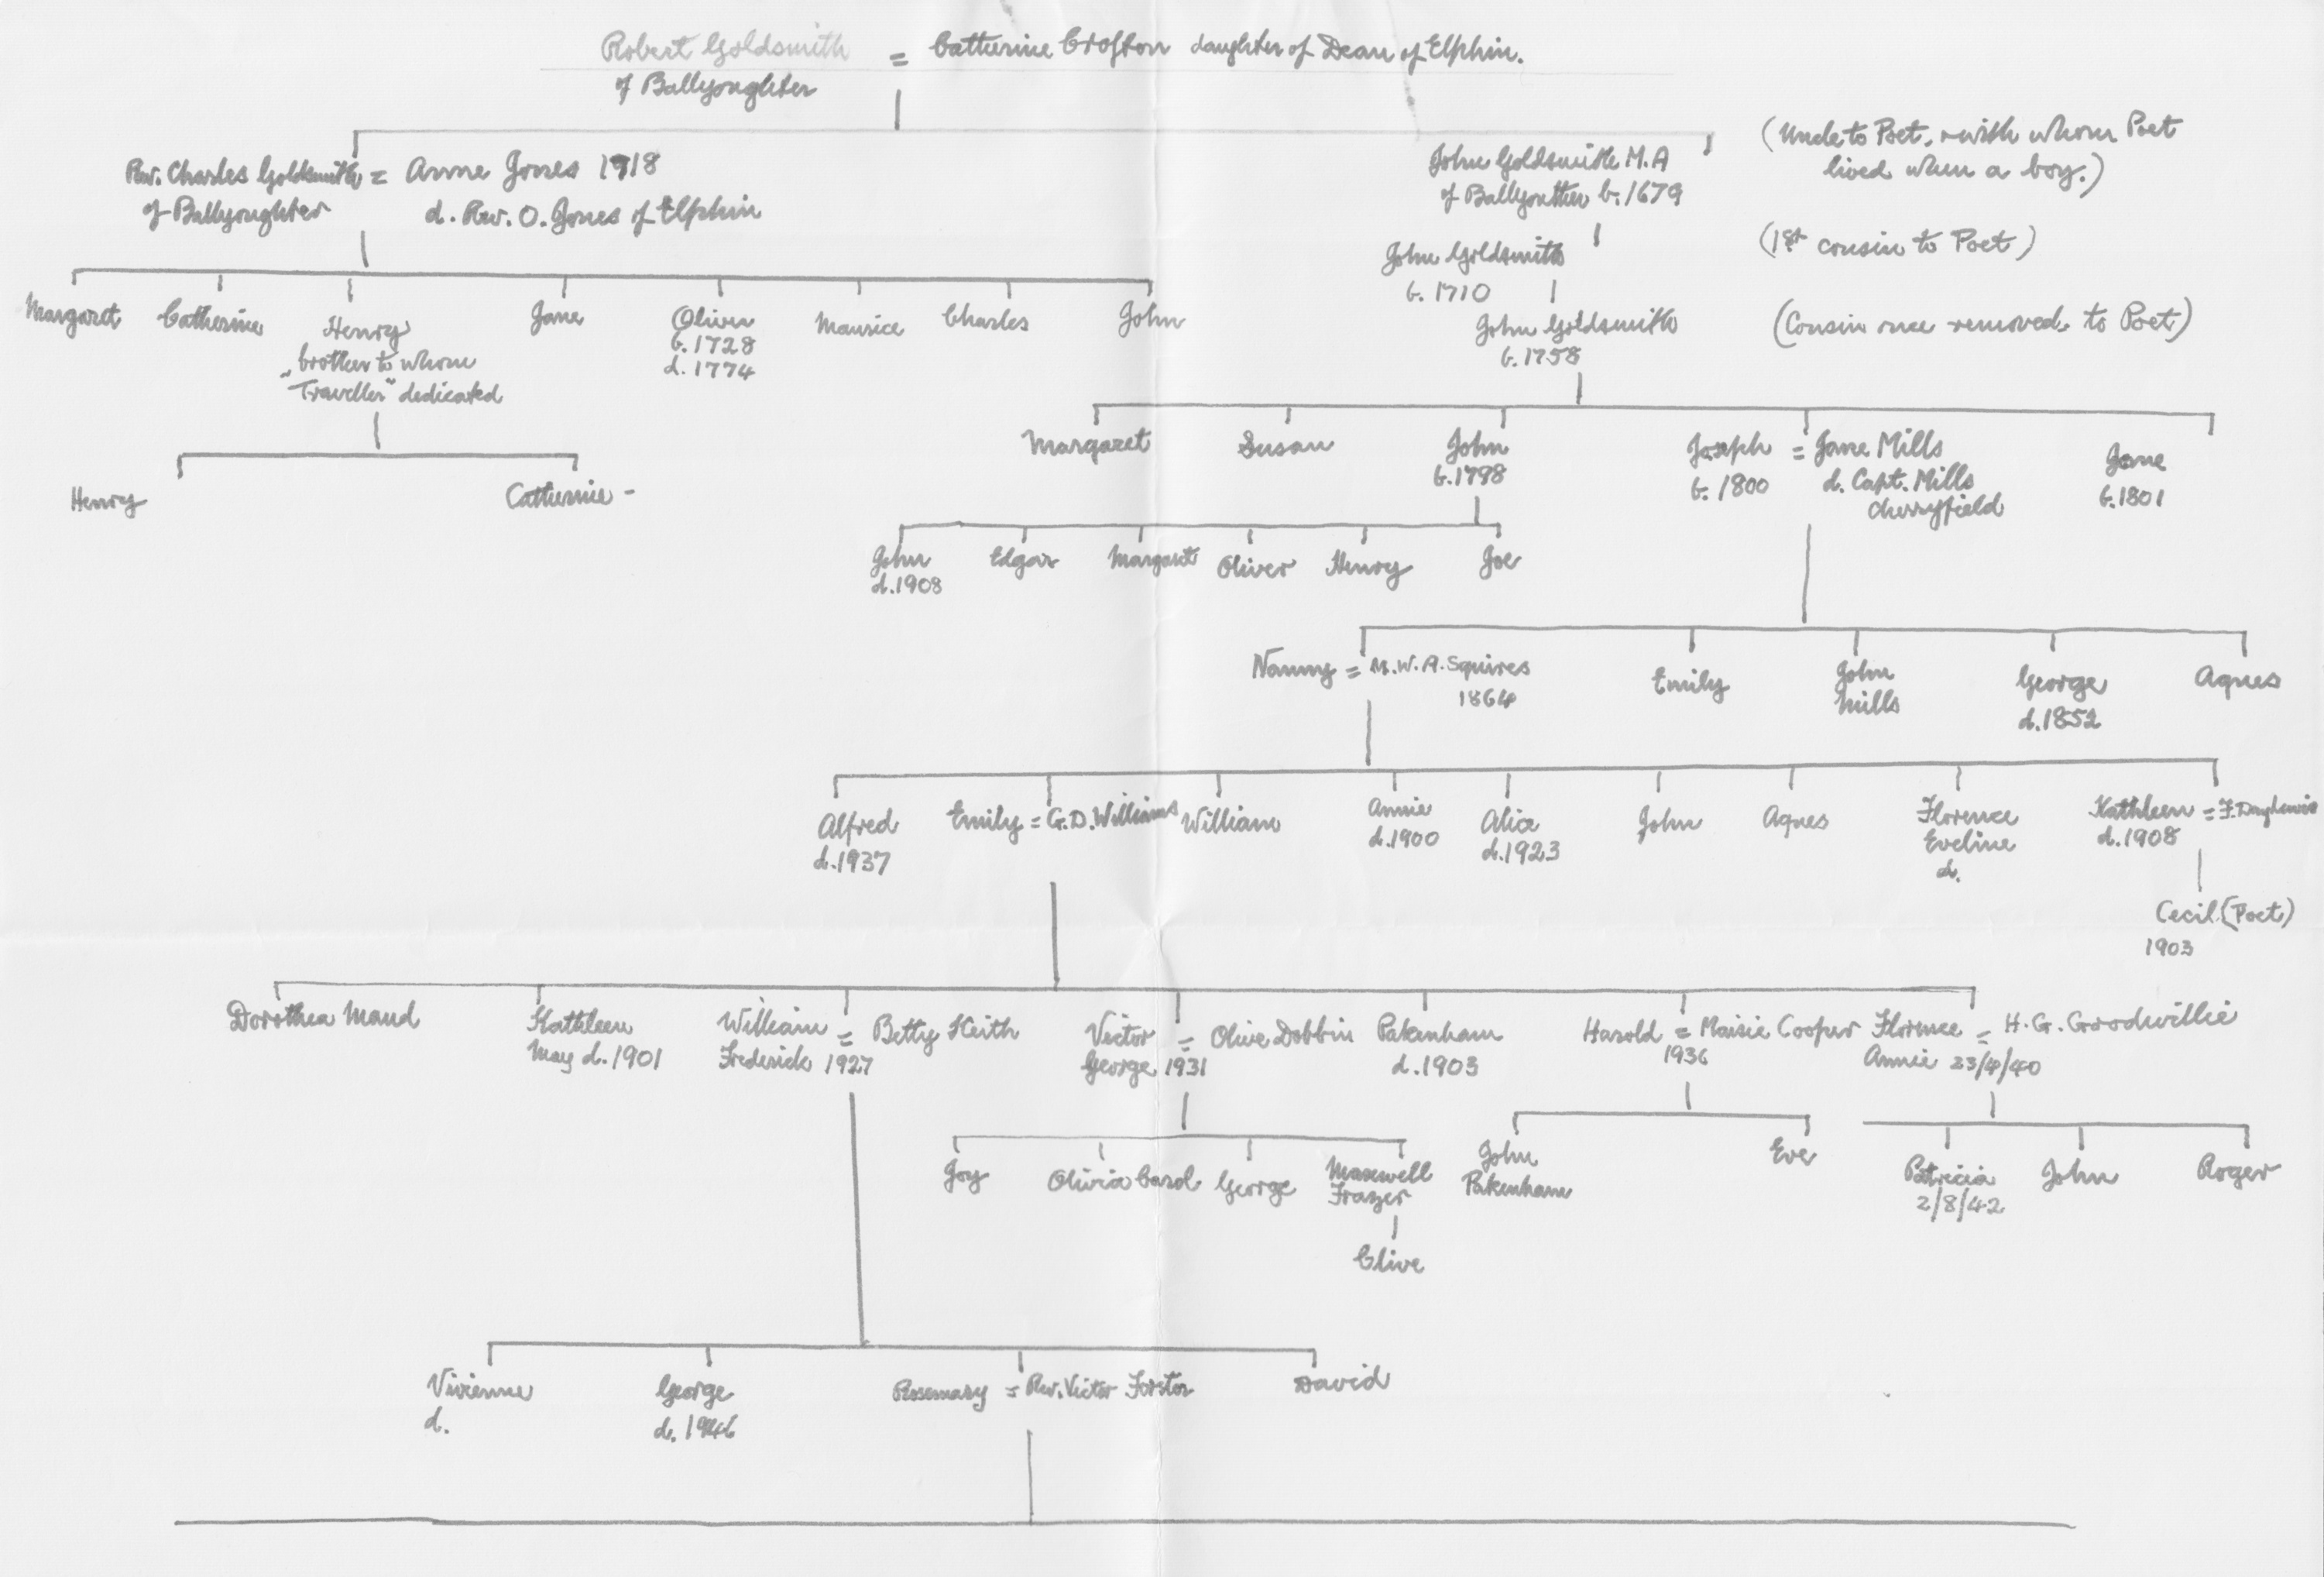 Robert Goldsmith = Catherine Crofton daughter of Dean of Elphin.
of Ballyoughter
Rev. Charles Goldsmith = Anne Jones 1718
of Ballyoughter
d. Rev. O. Jones of Elphin
John Goldsmith M.A
of Ballyoughter b. 1679
(Uncle to Poet, with whom Poet
lived when a boy.)
John Goldsmith
b. 1710
(1st cousin to Poet)
John Goldsmith
b. 1758
(Cousin once removed, to Poet)
Margaret Catherine Henry Jane Oliver Maurice Charles John
b. 1728
d. 1774
brother to whom
"Traveller" dedicated
Henry Catherine -
Margaret Susan John Joseph = Jane Mills Jane
b. 1798 b. 1800 d. Capt. Mills b. 1801
Cherryfield
John Edgar Margaret Oliver Henry Joe
d. 1908
Nanny = M. W. A. Squires Emily John George Agnes
1864 Mills d. 1852
Alfred Emily = G. D. Williams William Annie Alice John Agnes Florence Kathleen = F. Day Lewis
d. 1937 d. 1900 d. 1923 Eveline d. 1908
d.
Cecil (Poet)
1903
Dorothea Maud Kathleen William = Betty Keith Victor = Olive Dobbin Pakenham Harold = Maisie Cooper Florence = H. G. Goodwillie
May d. 1901 Frederick 1927 George 1931 d. 1903 1936 Annie 23/4/40
Joy Olivia Carol George Maxwell John Eve Patricia John Roger
Frazer Pakenham 2/8/42
Clive
Vivienne George Rosemary = Rev. Victor Forster David
d. d. 1946